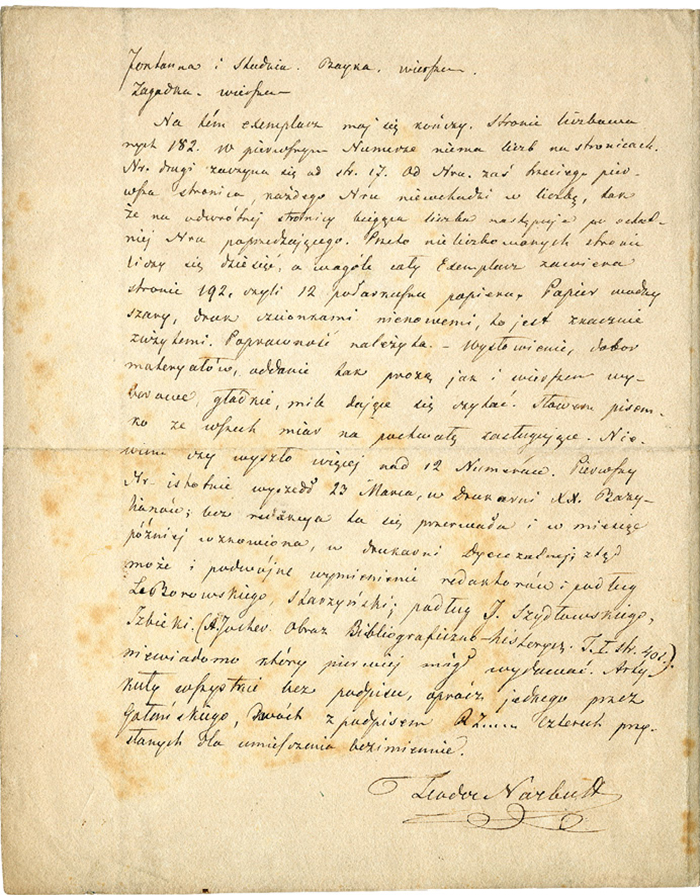 Fontanna i Studnia. Bayka. wierszem.
Zagadka. wierszem
Na tém exemplarz moj się kończy. Stronic liczbowa-
nych 182. w pierwszym Numerze niema liczb na stronicach.
Nr. drugi zaczyna się od str. 17. Od Nru. zaś trzeciego pier-
wsza stronica, każdego Nru niewchodzi w liczbę, tak
że na odwrótnéj stronicy bieżąca liczba następuje po ostat-
niéj Nru poprzedzającego. Przeto nieliczbowanych stronic
liczy się dziesięć, a wogóle cały Exemplarz zawiera
stronic 192, czyli 12 półarkuszy papieru. Papier wodny
szary, druk czcionkami nienowemi, to jest znacznie
zużytemi. Poprawność należyta. – Wysłowienie, dobor
materyałów, oddanie tak prozą jak i wierszem wy-
borowe, gładnie, mile dające się czytać. Słowem pisem-
ko ze wszech miar na pochwałę zasługujące. Nie-
wiem czy wyszło więcej nad 12 Numerów. Pierwszy
Nr. istotnie wyszedł 23 Marca, w Drukarni XX. Bazy-
lianów; lecz redakcya ta się przerwała i w miesiąc
później wznowiona, w drukarni Dyecezalnej; ztąd
może i podwójne wymienienie redaktorów: podług
Le Borowskiego, Skarzyński; podług J. Szydłowskiego,
Izbicki. (A. Jocher. Obraz Bibliograficzno-historycz. T. I. str. 401.)
niewiadomo który pierwiej mógł wydawać. Arty-
kuły wszystkie bez podpisu, oprócz jednego przez
Gotońskiego, Dwóch z podpisem czterech przy-
słanych dla umieszczenia bezimiennie.
Teodor Narbutt